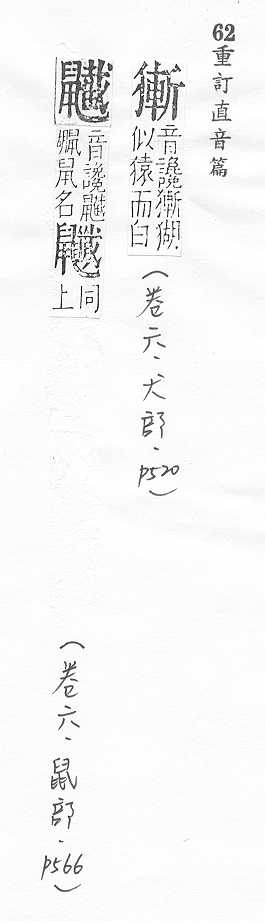 62重訂直音篇
獑
音讒獑猢
似猿而白
(卷六、犬部、p520)
音讒
鼠名
同
上
(卷六、鼠部、p566)